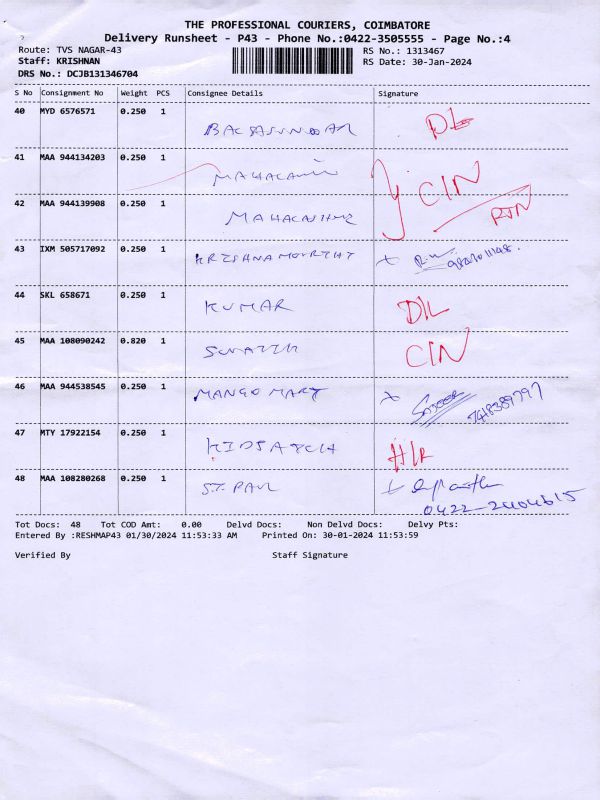 THE PROFESSIONAL COURIERS, COIMBATORE
Delivery Runsheet - P43 - Phone No.:0422-3505555 - Page No.:4
Route: TVS NAGAR-43 RS No.: 1313467
Staff: KRISHNAN RS Date: 30-Jan-2024
DRS No.: DCJB131346704
S No Consignment No Weight PCS Consignee Details Signature
40 MYD 6576571 0.250 1 DL
41 MAA 944134203 0.250 1 CIN
42 MAA 944139908 0.250 1 RTN
43 IXM 505717092 0.250 1 KRISHNAMOURTHY
44 SKL 658671 0.250 1 KUMAR D/L
45 MAA 108090242 0.820 1 CIN
46 MAA 944538545 0.250 1 MANGO MART 7418389797
47 MTY 17922154 0.250 1 H/R
48 MAA 108280268 0.250 1 ST. PAUL
0422-2404615
Tot Docs: 48 Tot COD Amt: 0.00 Delvd Docs: Non Delvd Docs: Delvy Pts:
Entered By :RESHMAP43 01/30/2024 11:53:33 AM Printed On: 30-01-2024 11:53:59
Verified By Staff Signature